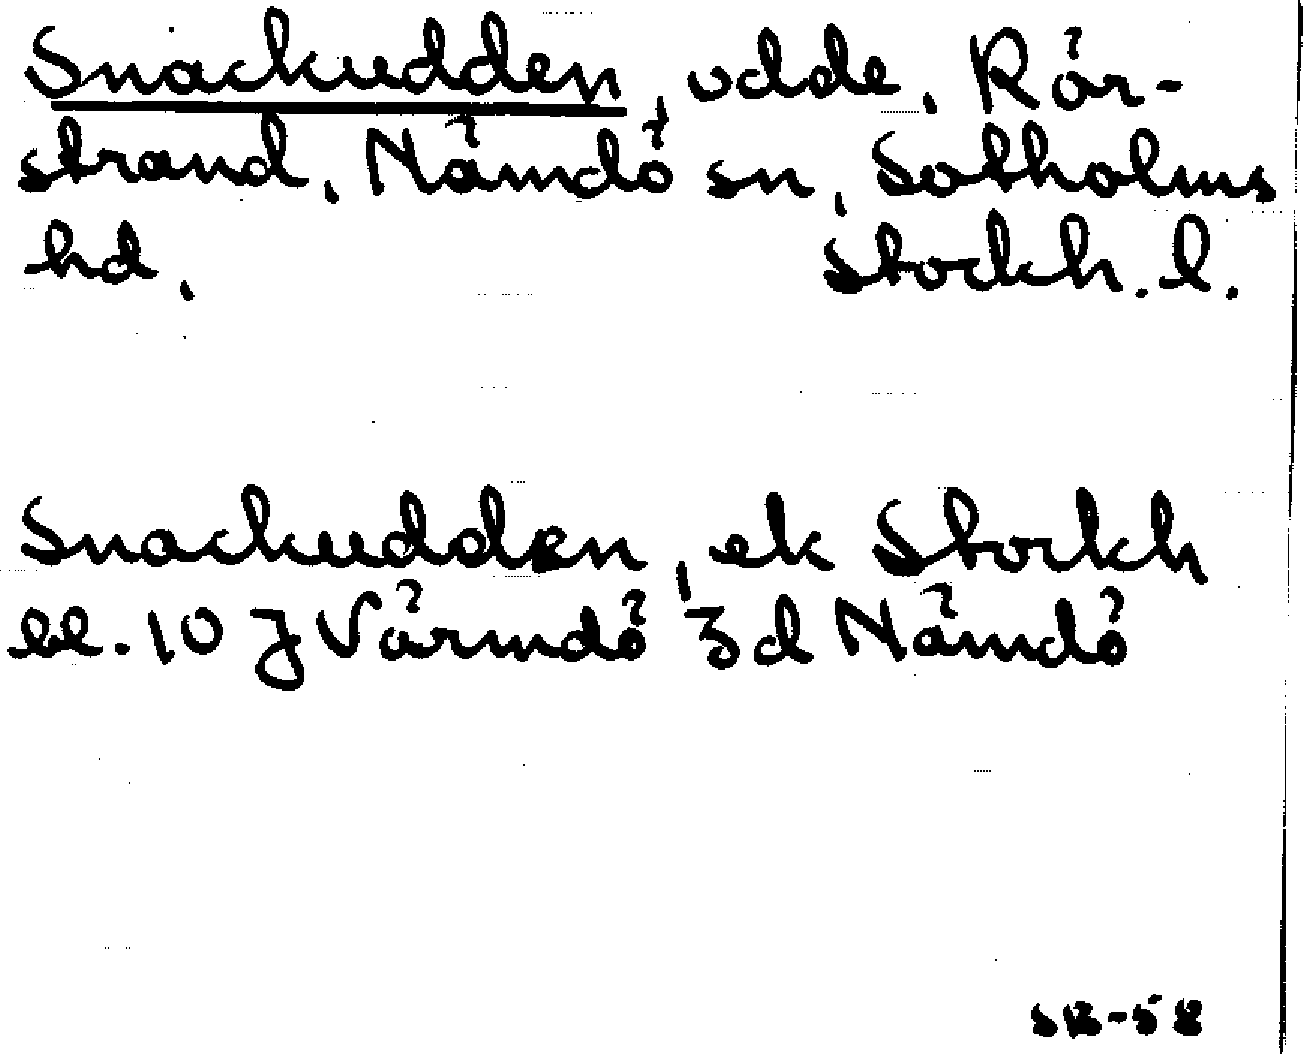 Snackudden, udde, Rör-
strand, Nämdö sn, Sotholms
hd. Stockh. l.
Snackudden, ek Stockh
bl. 10 J Värmdö 3d Nämdö
SB-58